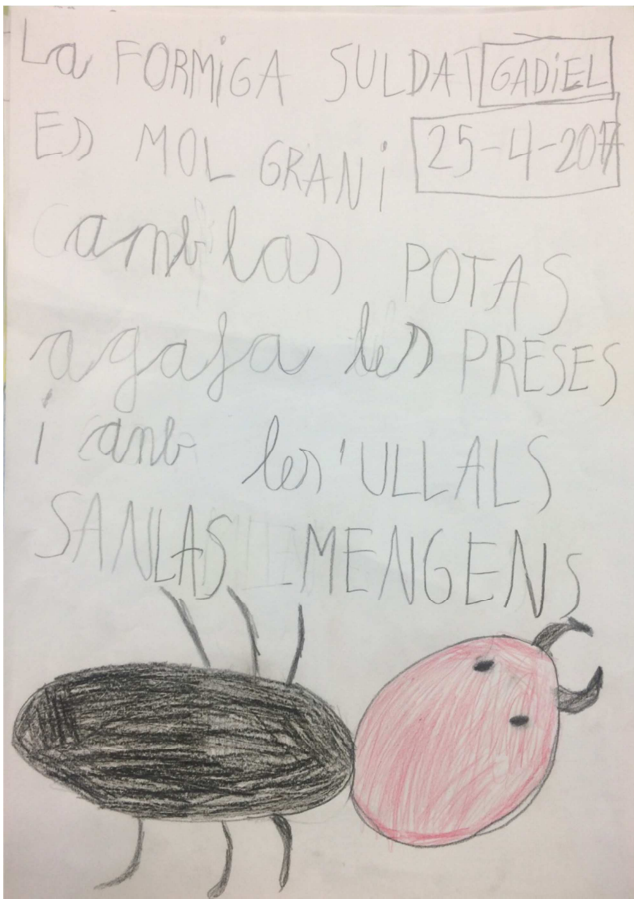 La FORMiGA SULDAT GADiEL
ES MOL GRAN i 25-4-2017
amb las POTAS
agafa les PRESES
i anb les'ULLALS
SANLAS MENGENS